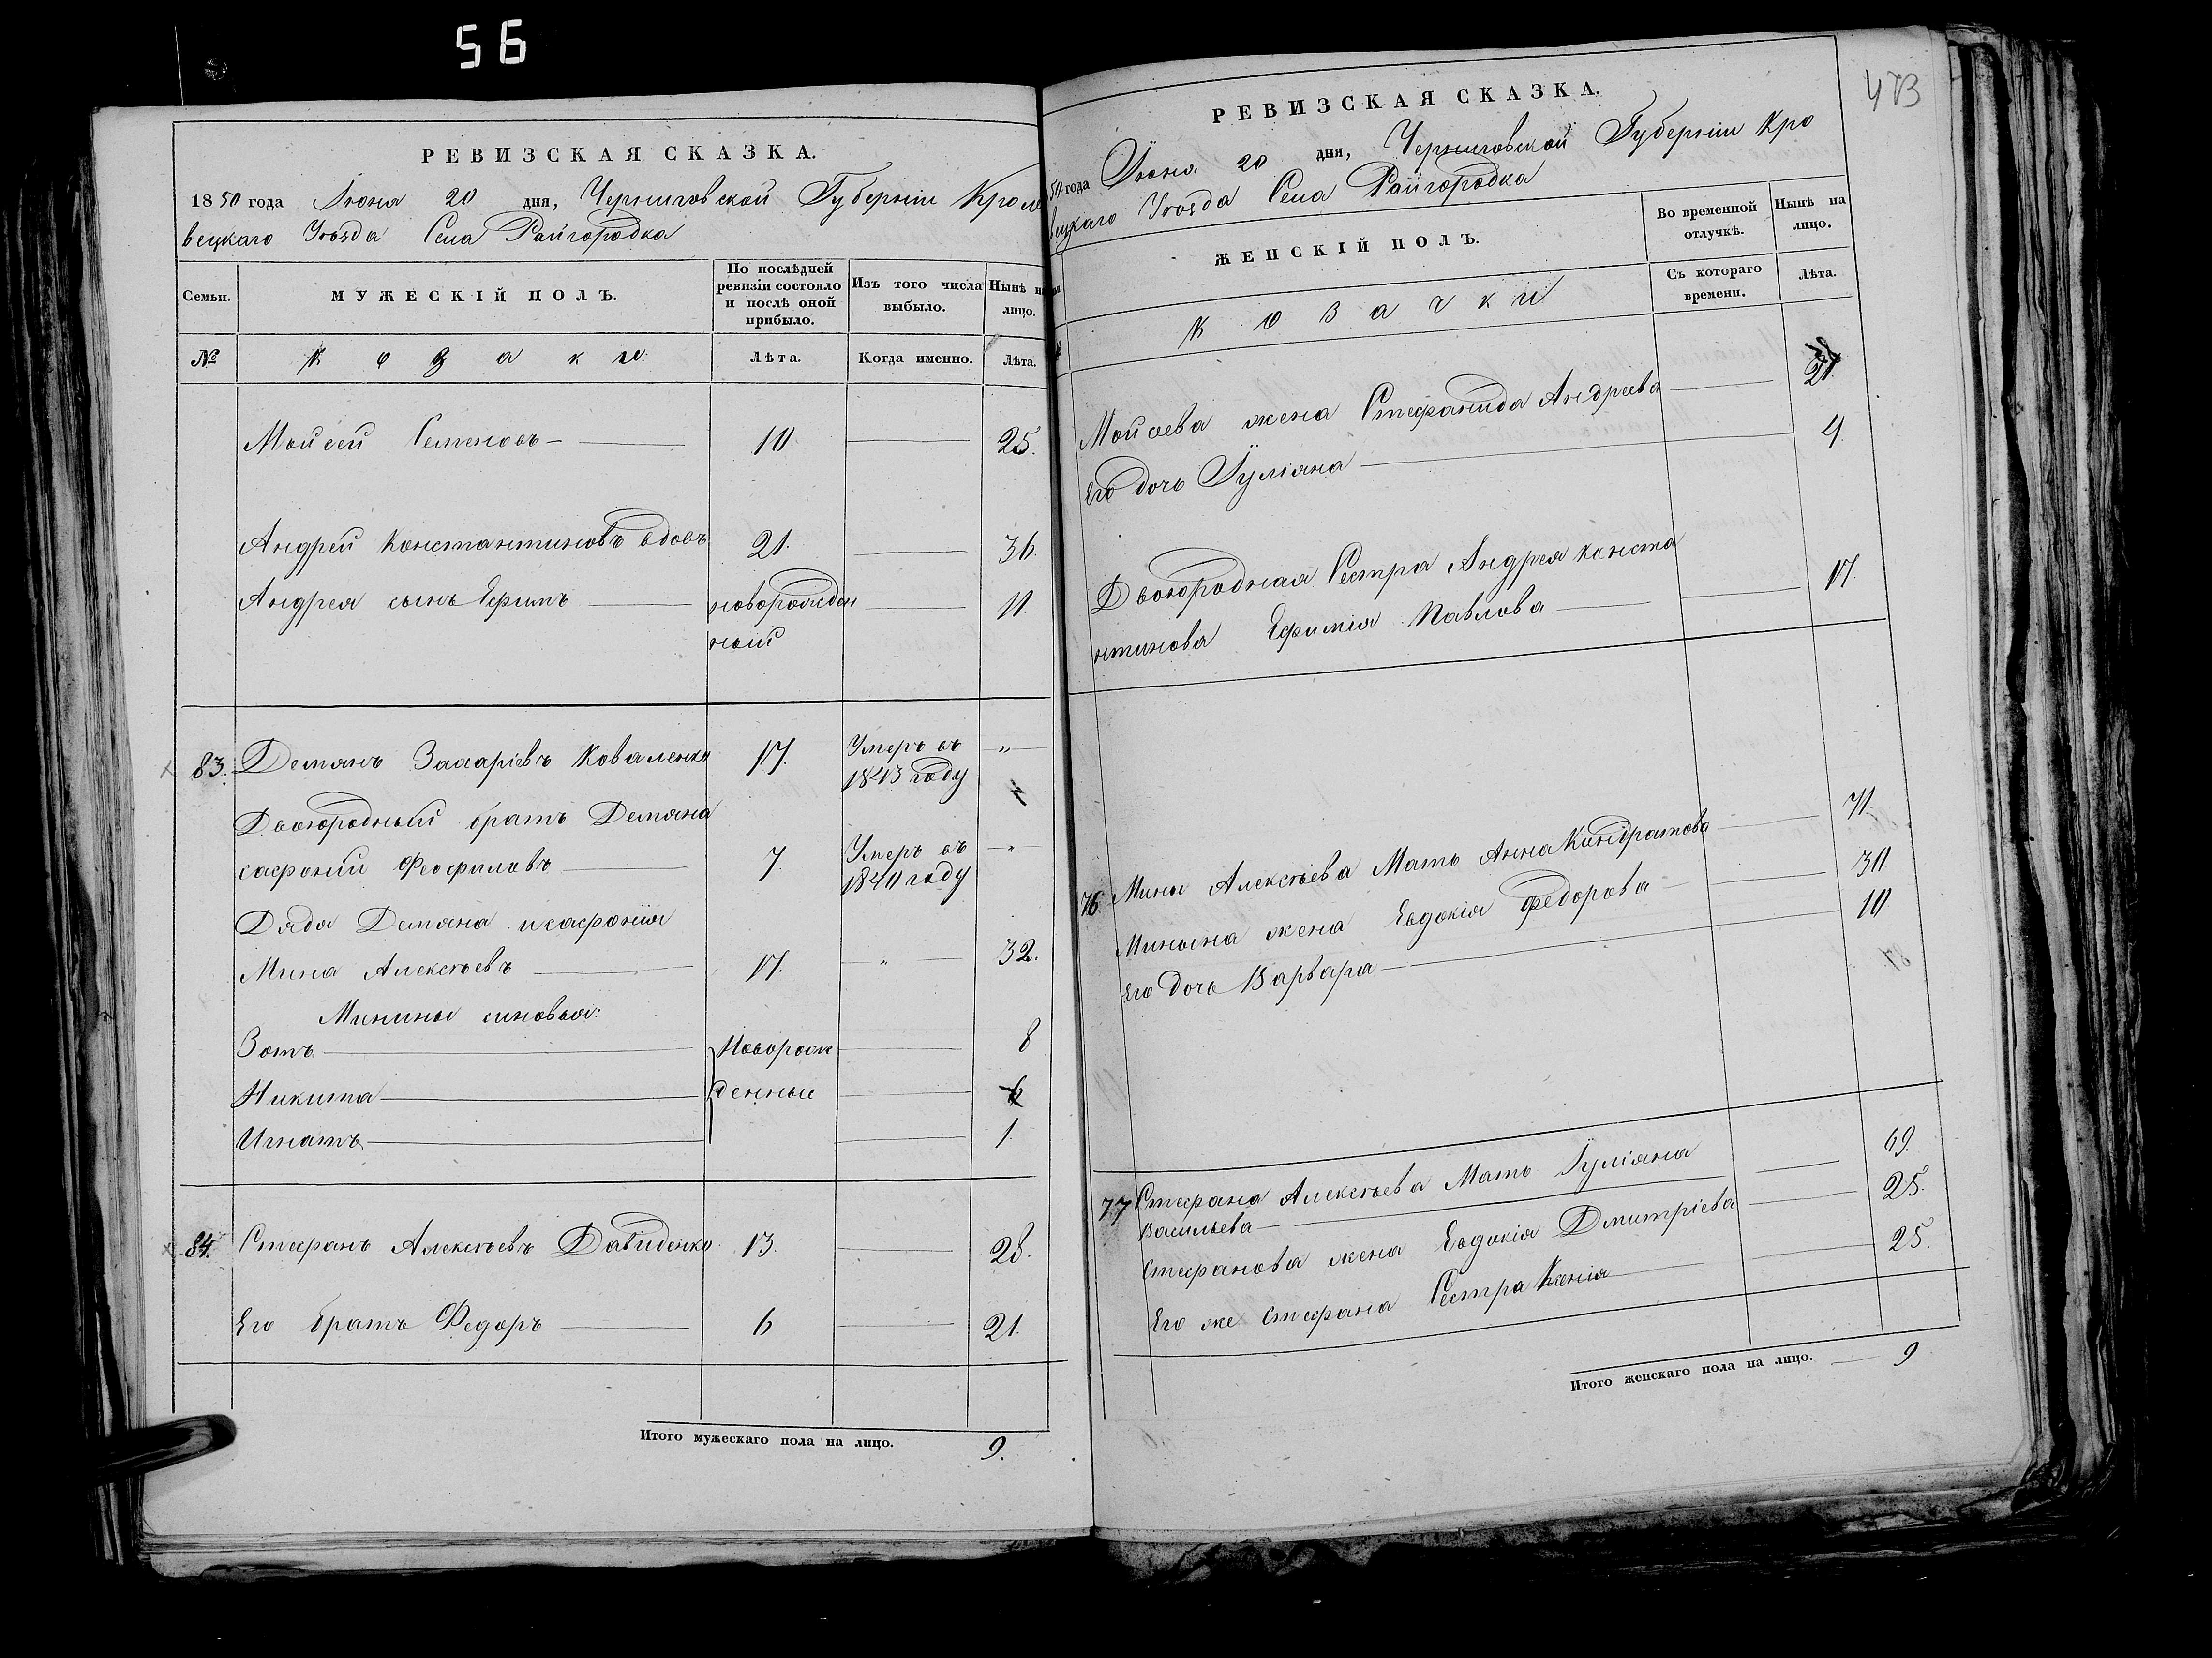 56
РЕВИЗСКАЯ СКАЗКА.
1850 года Іюня 20 дня, Черниговской Губерніи Кроле
вецкаго Уѣзда Села Райгородка
Семьи.
МУЖЕСКІЙ ПОЛЪ.
По послѣдней ревизіи состояло и послѣ оной прибыло.
Изъ того числа выбыло.
Нынѣ на лицо.
№
Козаки:
Лѣта.
Когда именно.
Лѣта.
Мойсей Семеновъ — 10 — 25.
Андрей Константиновъ вдовъ 21. — 36.
Андрея сынъ Ефимъ — новорожден — 11
ный
83. Демянъ Захаріевъ Коваленко 17. Умеръ въ — „ —
1843 году
Двоюродный братъ Демяна
сафроній Феофиловъ — 7. Умеръ въ — „ —
1840 году
Дядя Демяна и сафронія
Мина Алексѣевъ — 17. — „ — 32.
Минины синовья:
Зотъ — Новорож — 8
Никита — денные — 6
Игнатъ — 1.
84. Стефанъ Алексѣевъ Давиденко 13. — 28.
Его братъ Федоръ — 6 — 21.
Итого мужескаго пола на лицо. 9.
473
РЕВИЗСКАЯ СКАЗКА.
50 года Іюня 20 дня, Черниговской Губерніи Кро
вецкаго Уѣзда Села Райгородка
ЖЕНСКІЙ ПОЛЪ.
Во временной отлучкѣ.
Нынѣ на лицо.
Козачки
Съ котораго времени.
Лѣта.
Мойсеева жена Стефанида Андреева — 21.
Его дочь Іуліяна — 4.
Двоюродная Сестра Андрея Конста
нтинова Ефимія Павлова — 17.
76. Мины Алексѣева Мать Анна Киндратова — 71.
Минына жена Евдокія Федорова — 30
Его дочь Варвара — 10
77 Стефана Алексѣева Мать Іуліяна — 69.
Васильева —
Стефанова жена Евдокія Дмитріева — 25.
Его же Стефана Сестра Ксенія — 25.
Итого женскаго пола на лицо. — 9